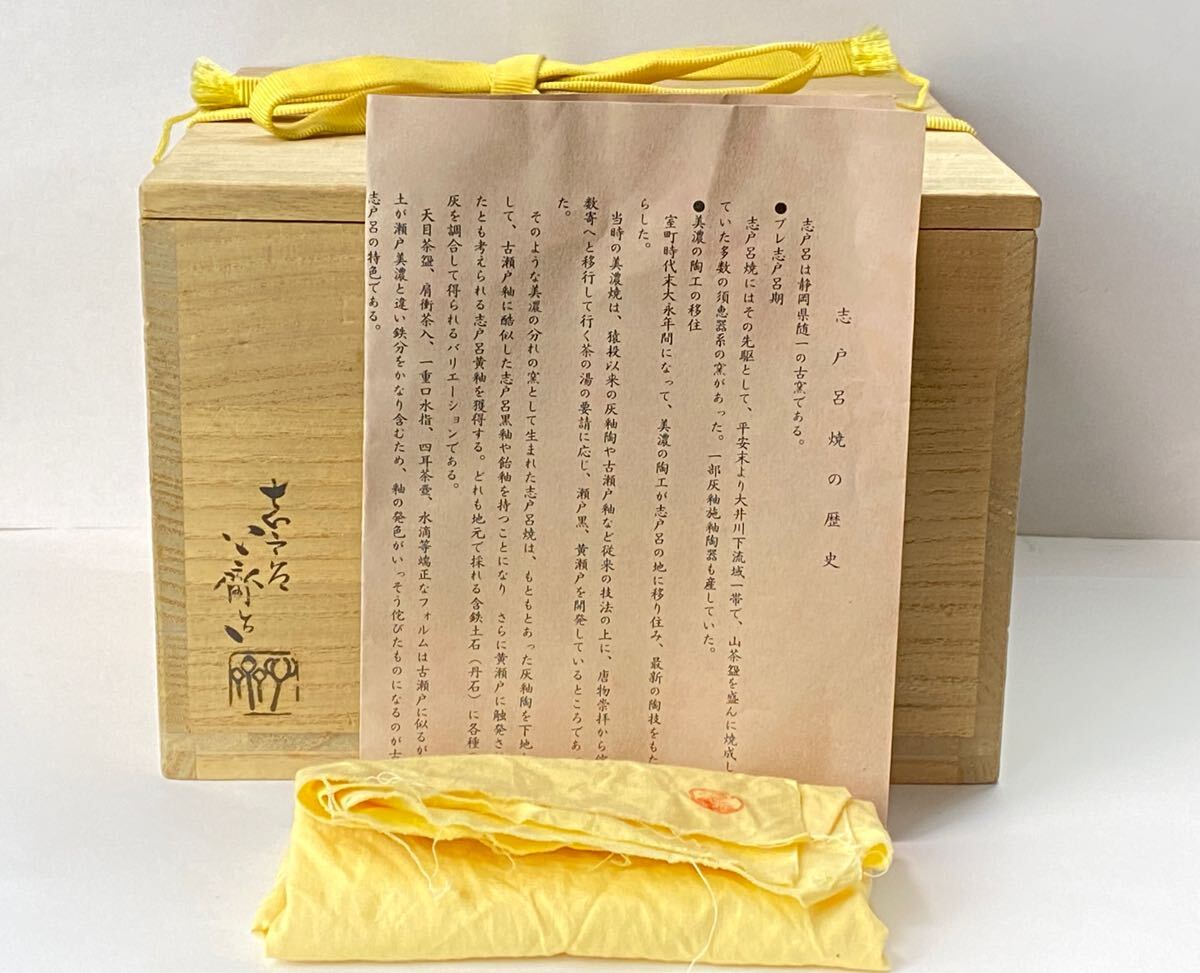 志戸呂焼の歴史
志戸呂は静岡県随一の古窯である。
●プレ志戸呂期
志戸呂焼にはその先駆として、平安末より大井川下流域一帯で、山茶盌を盛んに焼成し
ていた多数の須恵器系の窯があった。一部灰釉施釉陶器も産していた。
●美濃の陶工の移住
室町時代末大永年間になって、美濃の陶工が志戸呂の地に移り住み、最新の陶技をもた
らした。
当時の美濃焼は、猿投以来の灰釉陶や古瀬戸釉など従来の技法の上に、唐物崇拝から侘
数寄へと移行して行く茶の湯の要請に応じ、瀬戸黒、黄瀬戸を開発しているところであ
た。
そのような美濃の分れの窯として生まれた志戸呂焼は、もともとあった灰釉陶を下地
して、古瀬戸釉に酷似した志戸呂黒釉や飴釉を持つことになり さらに黄瀬戸に触発さ
たとも考えられる志戸呂黄釉を獲得する。どれも地元で採れる含鉄土石（丹石）に各種
灰を調合して得られるバリエーションである。
天目茶盌、肩衝茶入、一重口水指、四耳茶壺、水滴等端正なフォルムは古瀬戸に似るが
土が瀬戸美濃と違い鉄分をかなり含むため、釉の発色がいっそう侘びたものになるのが古
志戸呂の特色である。
志戸呂